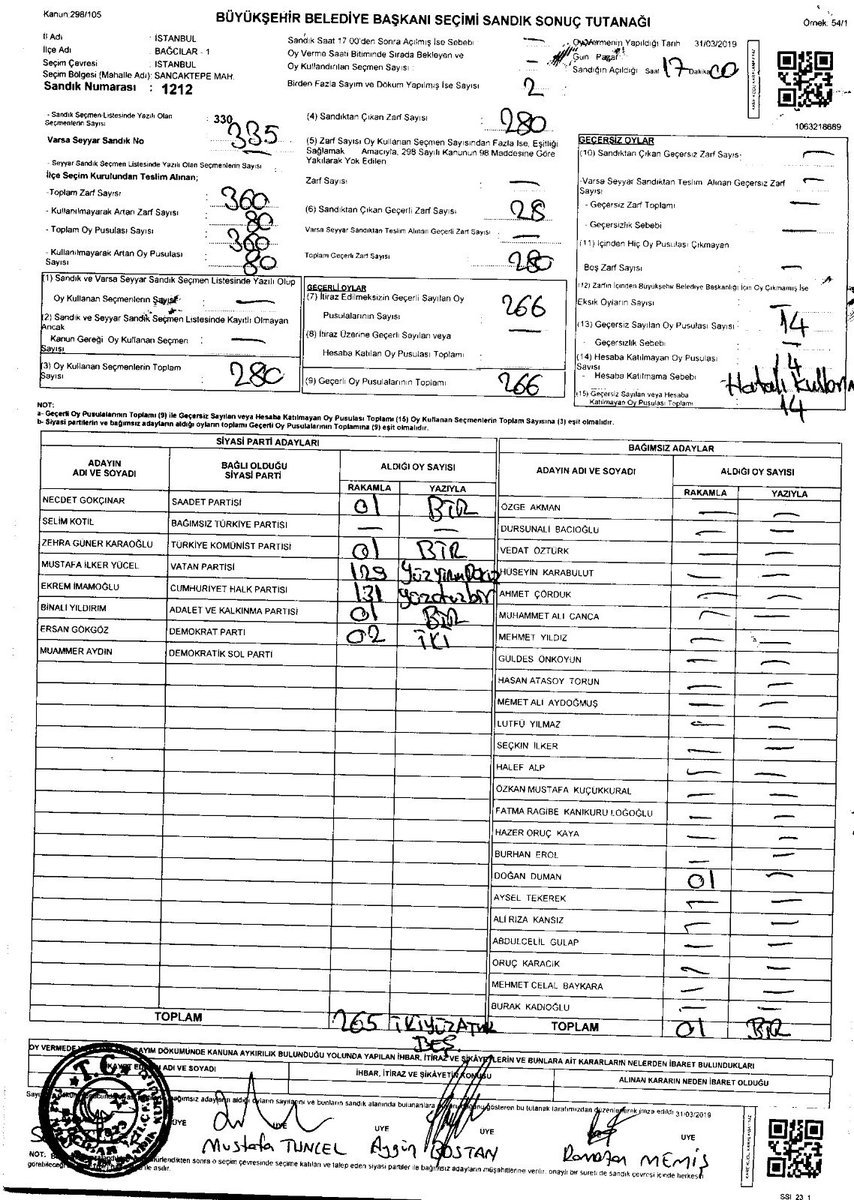 Kanun:298/105
BÜYÜKŞEHİR BELEDİYE BAŞKANI SEÇİMİ SANDIK SONUÇ TUTANAĞI
Örnek: 54/1
İl Adı : İSTANBUL
İlçe Adı : BAĞCILAR - 1
Seçim Çevresi : İSTANBUL
Seçim Bölgesi (Mahalle Adı): SANCAKTEPE MAH.
Sandık Numarası : 1212
Sandık Saat 17:00'den Sonra Açılmış İse Sebebi : —
Oy Verme Saati Bitiminde Sırada Bekleyen ve
Oy Kullandırılan Seçmen Sayısı : —
Birden Fazla Sayım ve Döküm Yapılmış İse Sayısı : 2
Oy Vermenin Yapıldığı Tarih 31/03/2019
Gün Pazar
Sandığın Açıldığı Saat 17 Dakika 00
1063218689
- Sandık Seçmen Listesinde Yazılı Olan
Seçmenlerin Sayısı : 330
335
Varsa Seyyar Sandık No : —
- Seyyar Sandık Seçmen Listesinde Yazılı Olan Seçmenlerin Sayısı :
İlçe Seçim Kurulundan Teslim Alınan;
-Toplam Zarf Sayısı : 360
- Kullanılmayarak Artan Zarf Sayısı : 80
- Toplam Oy Pusulası Sayısı : 360
- Kullanılmayarak Artan Oy Pusulası
Sayısı : 80
(1) Sandık ve Varsa Seyyar Sandık Seçmen Listesinde Yazılı Olup
Oy Kullanan Seçmenlerin Sayısı : —
(2) Sandık ve Seyyar Sandık Seçmen Listesinde Kayıtlı Olmayan
Ancak
Kanun Gereği Oy Kullanan Seçmen : —
Sayısı
(3) Oy Kullanan Seçmenlerin Toplam
Sayısı : 280
(4) Sandıktan Çıkan Zarf Sayısı : 280
(5) Zarf Sayısı Oy Kullanan Seçmen Sayısından Fazla İse, Eşitliği
Sağlamak Amacıyla, 298 Sayılı Kanunun 98 Maddesine Göre
Yakılarak Yok Edilen
Zarf Sayısı : —
(6) Sandıktan Çıkan Geçerli Zarf Sayısı : 28
Varsa Seyyar Sandıktan Teslim Alınan Geçerli Zarf Sayısı : —
Toplam Geçerli Zarf Sayısı : 280
GEÇERLİ OYLAR
(7) İtiraz Edilmeksizin Geçerli Sayılan Oy
Pusulalarının Sayısı : 266
(8) İtiraz Üzerine Geçerli Sayılan veya
Hesaba Katılan Oy Pusulası Toplamı : —
(9) Geçerli Oy Pusulalarının Toplamı : 266
GEÇERSİZ OYLAR
(10) Sandıktan Çıkan Geçersiz Zarf Sayısı- : —
-Varsa Seyyar Sandıktan Teslim Alınan Geçersiz Zarf
Sayısı : —
- Geçersiz Zarf Toplamı : —
- Geçersizlik Sebebi :
(11) İçinden Hiç Oy Pusulası Çıkmayan
Boş Zarf Sayısı : —
(12) Zarfın İçinden Büyükşehir Belediye Başkanlığı İçin Oy Çıkmamış İse
Eksik Oyların Sayısı : —
(13) Geçersiz Sayılan Oy Pusulası Sayısı : 14
- Geçersizlik Sebebi : —
(14) Hesaba Katılmayan Oy Pusulası
Sayısı : 14
- Hesaba Katılmama Sebebi : Hatalı Kullanım
(15) Geçersiz Sayılan veya Hesaba
Katılmayan Oy Pusulası Toplamı : 14
NOT:
a- Geçerli Oy Pusulalarının Toplamı (9) ile Geçersiz Sayılan veya Hesaba Katılmayan Oy Pusulası Toplamı (15) Oy Kullanan Seçmenlerin Toplam Sayısına (3) eşit olmalıdır.
b- Siyasi partilerin ve bağımsız adayların aldığı oyların toplamı Geçerli Oy Pusulalarının Toplamına (9) eşit olmalıdır.
SİYASİ PARTİ ADAYLARI
ADAYIN ADI VE SOYADI BAĞLI OLDUĞU SİYASİ PARTİ ALDIĞI OY SAYISI
RAKAMLA YAZIYLA
NECDET GÖKÇINAR SAADET PARTİSİ 01 BİR
SELİM KOTİL BAĞIMSIZ TÜRKİYE PARTİSİ — —
ZEHRA GÜNER KARAOĞLU TÜRKİYE KOMÜNİST PARTİSİ 01 BİR
MUSTAFA İLKER YÜCEL VATAN PARTİSİ 129 yüzyirmidokuz
EKREM İMAMOĞLU CUMHURİYET HALK PARTİSİ 131 yüzotuzbir
BİNALİ YILDIRIM ADALET VE KALKINMA PARTİSİ 01 BİR
ERSAN GÖKGÖZ DEMOKRAT PARTİ 02 İKİ
MUAMMER AYDIN DEMOKRATİK SOL PARTİ
TOPLAM 265 İKİYÜZATMIŞ BEŞ
BAĞIMSIZ ADAYLAR
ADAYIN ADI VE SOYADI ALDIĞI OY SAYISI
RAKAMLA YAZIYLA
ÖZGE AKMAN — —
DURSUNALİ BACIOĞLU — —
VEDAT ÖZTÜRK — —
HÜSEYİN KARABULUT — —
AHMET ÇÖRDÜK — —
MUHAMMET ALİ CANCA — —
MEHMET YILDIZ — —
GÜLDES ÖNKOYUN — —
HASAN ATASOY TORUN — —
MEMET ALİ AYDOĞMUŞ — —
LÜTFÜ YILMAZ — —
SEÇKİN İLKER — —
HALEF ALP — —
ÖZKAN MUSTAFA KÜÇÜKKURAL — —
FATMA RAGİBE KANIKURU LOĞOĞLU — —
HAZER ORUÇ KAYA — —
BURHAN EROL — —
DOĞAN DUMAN 01 —
AYSEL TEKEREK — —
ALİ RIZA KANSIZ — —
ABDULCELİL GÜLAP — —
ORUÇ KARACIK — —
MEHMET CELAL BAYKARA — —
BURAK KADIOĞLU — —
TOPLAM 01 BİR
OY VERMEDE VEYA OY SAYIM DÖKÜMÜNDE KANUNA AYKIRILIK BULUNDUĞU YOLUNDA YAPILAN İHBAR, İTİRAZ VE ŞİKÂYETLERİN VE BUNLARA AİT KARARLARIN NELERDEN İBARET BULUNDUKLARI
ŞİKAYET EDENİN ADI VE SOYADI İHBAR, İTİRAZ VE ŞİKÂYETİN KONUSU ALINAN KARARIN NEDEN İBARET OLDUĞU
31/03/2019
T.C.
ÜYE ÜYE ÜYE ÜYE
Mustafa TUNCEL Aygün BOSTAN Ramazan MEMİŞ
SSİ_23_1